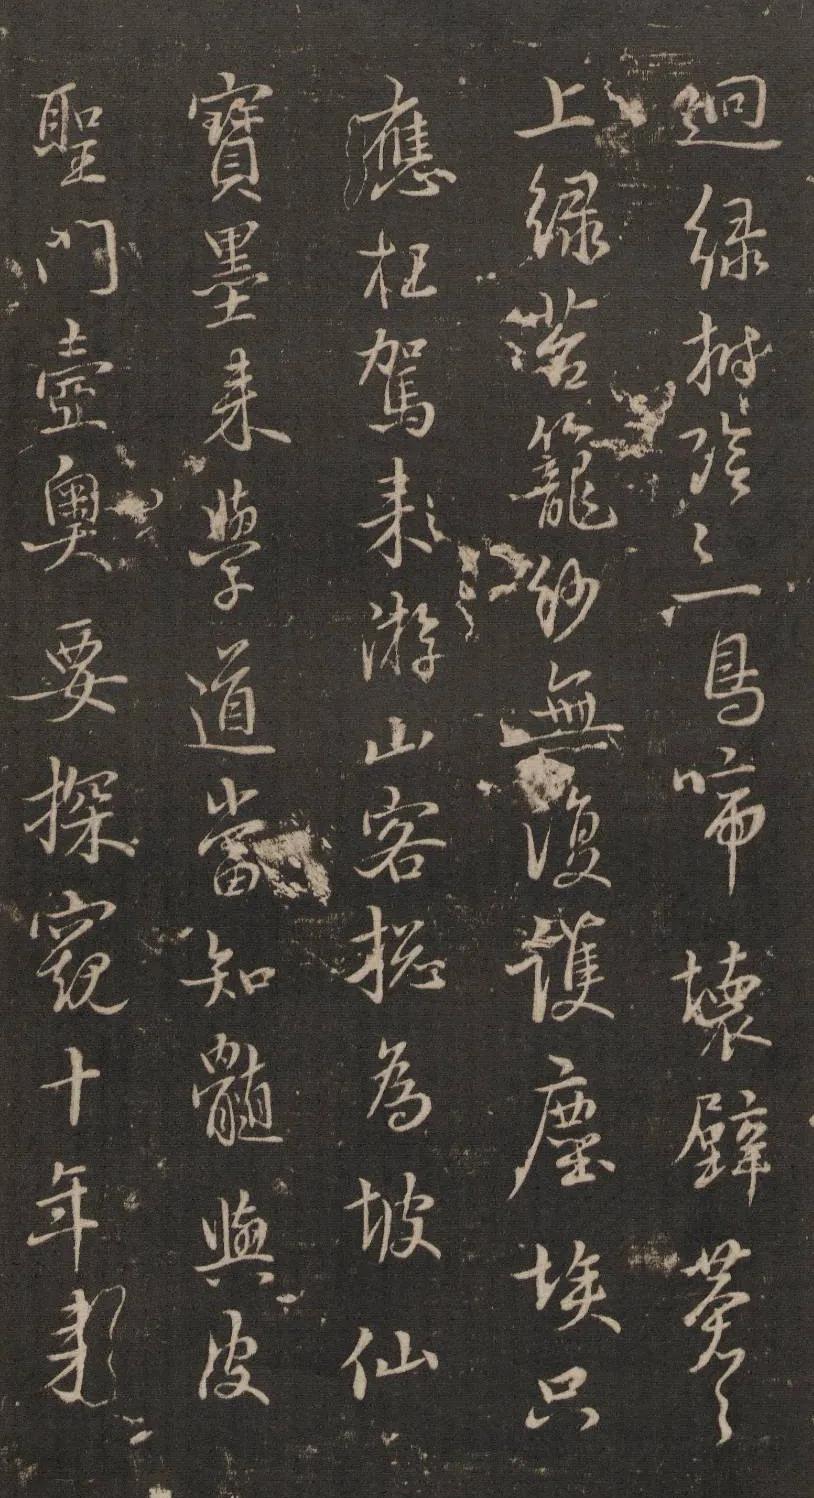 迴綠樹陰〻一鳥啼壞壁蒼〻
上綠菭籠紗無復護塵埃只
應枉駕來游山客揔為坡仙
寶墨來學道當知髓與皮
聖門壼奧要探窺十年來